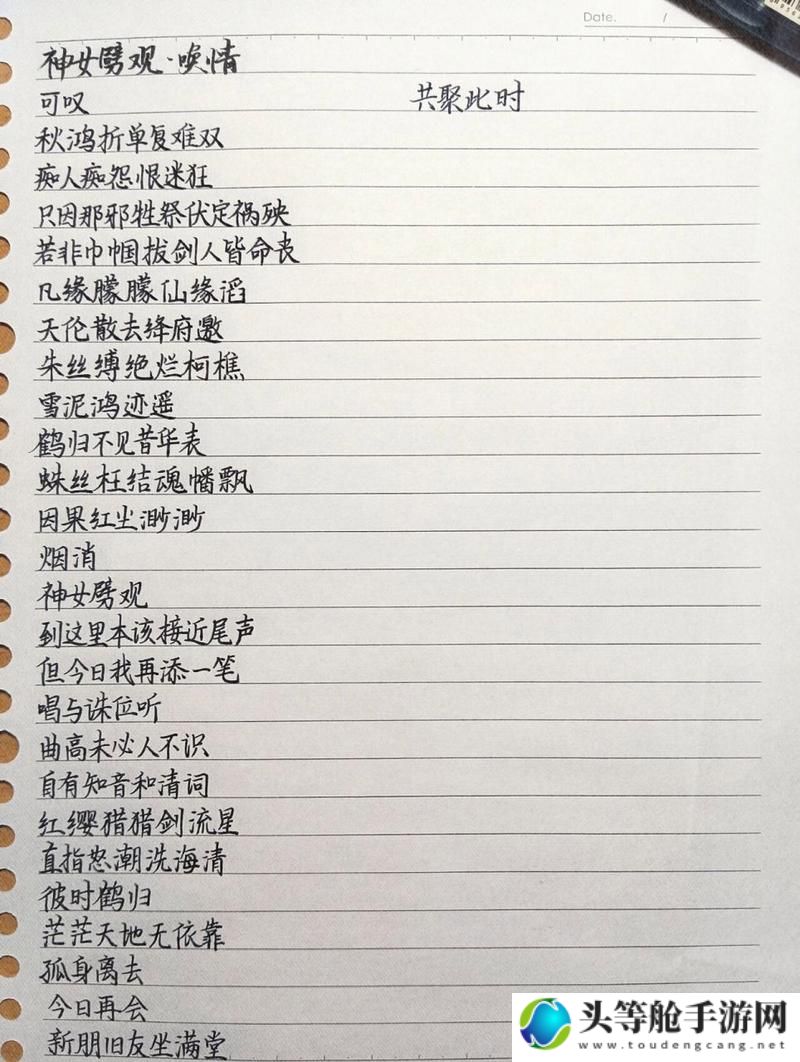 Date. /
神女劈观·唤情
可叹
秋鸿折单复难双
痴人痴怨恨迷狂
只因那邪牲祭伏定祸殃
若非巾帼拔剑人皆命丧
凡缘朦朦仙缘滔
天伦散去绛府邀
朱丝缚绝烂柯樵
雪泥鸿迹遥
鹤归不见昔华表
蛛丝枉结魂幡飘
因果红尘渺渺
烟消
神女劈观
到这里本该接近尾声
但今日我再添一笔
唱与诛位听
曲高未必人不识
自有知音和清词
红缨猎猎剑流星
直指怒潮洗海清
彼时鹤归
茫茫天地无依靠
孤身离去
今日再会
新朋旧友坐满堂
共聚此时
头等舱手游网
www.toudengcang.net